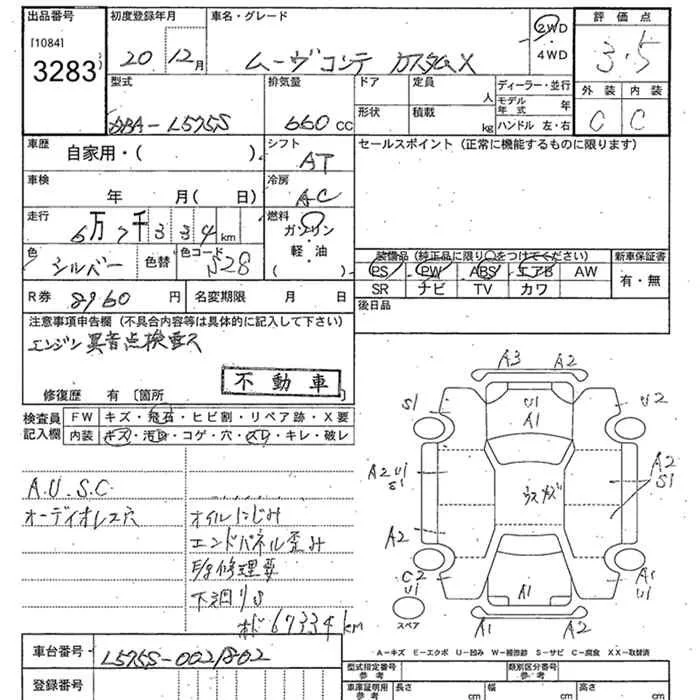 出品番号
[1084]
3283
初度登録年月
20年12月
車名・グレード
ムーヴコンテ カスタムX
2WD
4WD
評価点
3.5
外装
内装
C
C
型式
DBA-L575S
排気量
660cc
ドア
形状
定員 人
積載 kg
ディーラー・並行
モデル年式 年
ハンドル 左・右
車歴
自家用・( ).
シフト
AT
セールスポイント(正常に機能するものに限ります)
車検
年 月( 日)
冷房
AC
走行
6万7千334km
燃料
ガソリン
・
軽油
( )
色
シルバー
色替
色コード
S28
装備品(純正品に限り○をつけてください)
PS PW ABS エアB AW
SR ナビ TV カワ
新車保証書
有・無
R券 8960円
名変期限 月 日
後日品
注意事項申告欄(不具合内容等は具体的に記入して下さい)
エンジン異音点検要ス
不動車
修復歴 有〔箇所 〕
検査員記入欄
FW キズ・飛石・ヒビ割・リペア跡・X要
内装 キズ・汚れ・コゲ・穴・スレ・キレ・破レ
A.U.S.C
オーディオレス穴
オイルにじみ
エンドパネル歪み
E/g修理要
下廻りS
メーター67334km
A3 A2
S1
U2
U1
A1
A2 U1
S1
ウスキズ
A2
S1
A2
C2
U1
A1
A1
U1
スペア
A1
A2
A-キズ E-エクボ U-凹み W-補修跡 S-サビ C-腐食 XX-取替済
車台番号
L575S-0021802
登録番号
型式指定番号 参考
類別区分番号 参考
車庫証明用 参考
長さ cm
幅 cm
高さ cm